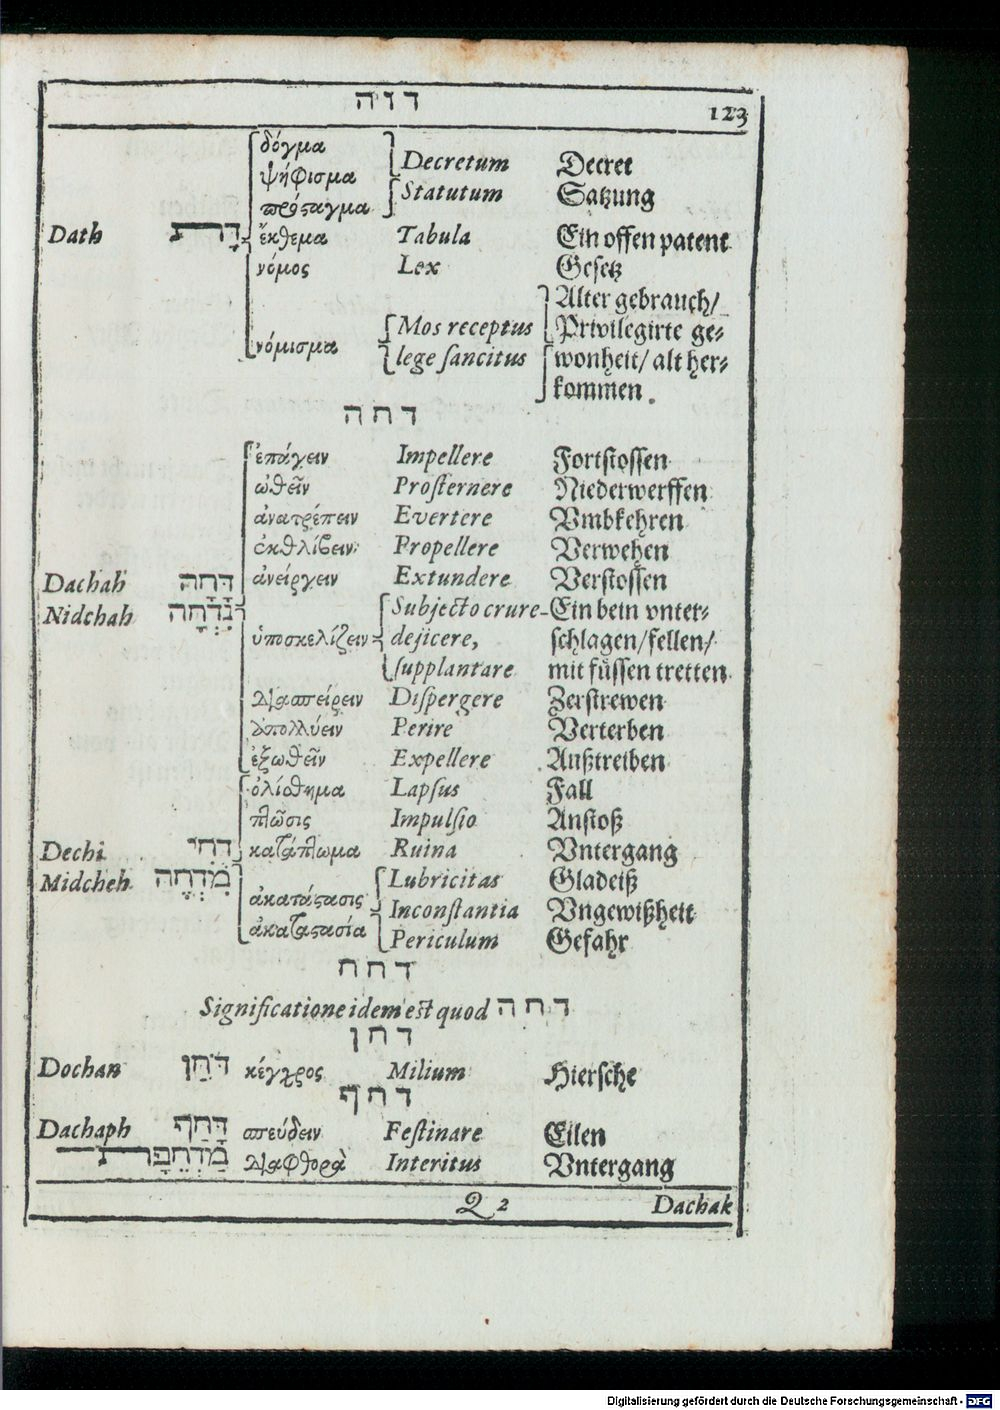 דוה 123
δόγμα
Decretum Decret
ψήφισμα
Statutum Satzung
πρόςαγμα
Dath דָּת ἔκθεμα Tabula Ein offen patent
νόμος Lex Gesetz
Alter gebrauch/
Mos receptus Privilegirte ge⸗
νόμισμα
lege sancitus wonheit/ alt her⸗
kommen.
דחה
ἐπάγειν Impellere Fortstossen
ὠθεῖν Prosternere Niederwerffen
ἀνατρέπειν Evertere Vmbkehren
ἐκθλίβειν Propellere Verwehen
Dachah דָּחָה ἀνείργειν Extundere Verstossen
Nidchah נִדְחָה Subjecto crure Ein bein vnter⸗
ὑποσκελίζειν dejicere, schlagen/fellen/
supplantare mit füssen tretten
διασπείρειν Dispergere Zerstrewen
ἀπολλύειν Perire Verterben
ἐξωθεῖν Expellere Außtreiben
ὀλίσθημα Lapsus Fall
πτῶσις Impulsio Anstoß
Dechi דְּחִי κατάπτωμα Ruina Vntergang
Midcheh מִדְחֶה Lubricitas Gladeiß
ἀκατάςασις
Inconstantia Vngewißheit
ἀκαταςασία
Periculum Gefahr
דחח
Significatione idem est quod דחה
דחן
Dochan דֹּחַן κέγχρος Milium Hiersche
דחף
Dachaph דָּחַף σπεύδειν Festinare Eilen
מַדְחֵפָּת διαφθορὰ Interitus Vntergang
Q 2 Dachak
Digitalisierung gefördert durch die Deutsche Forschungsgemeinschaft - DFG